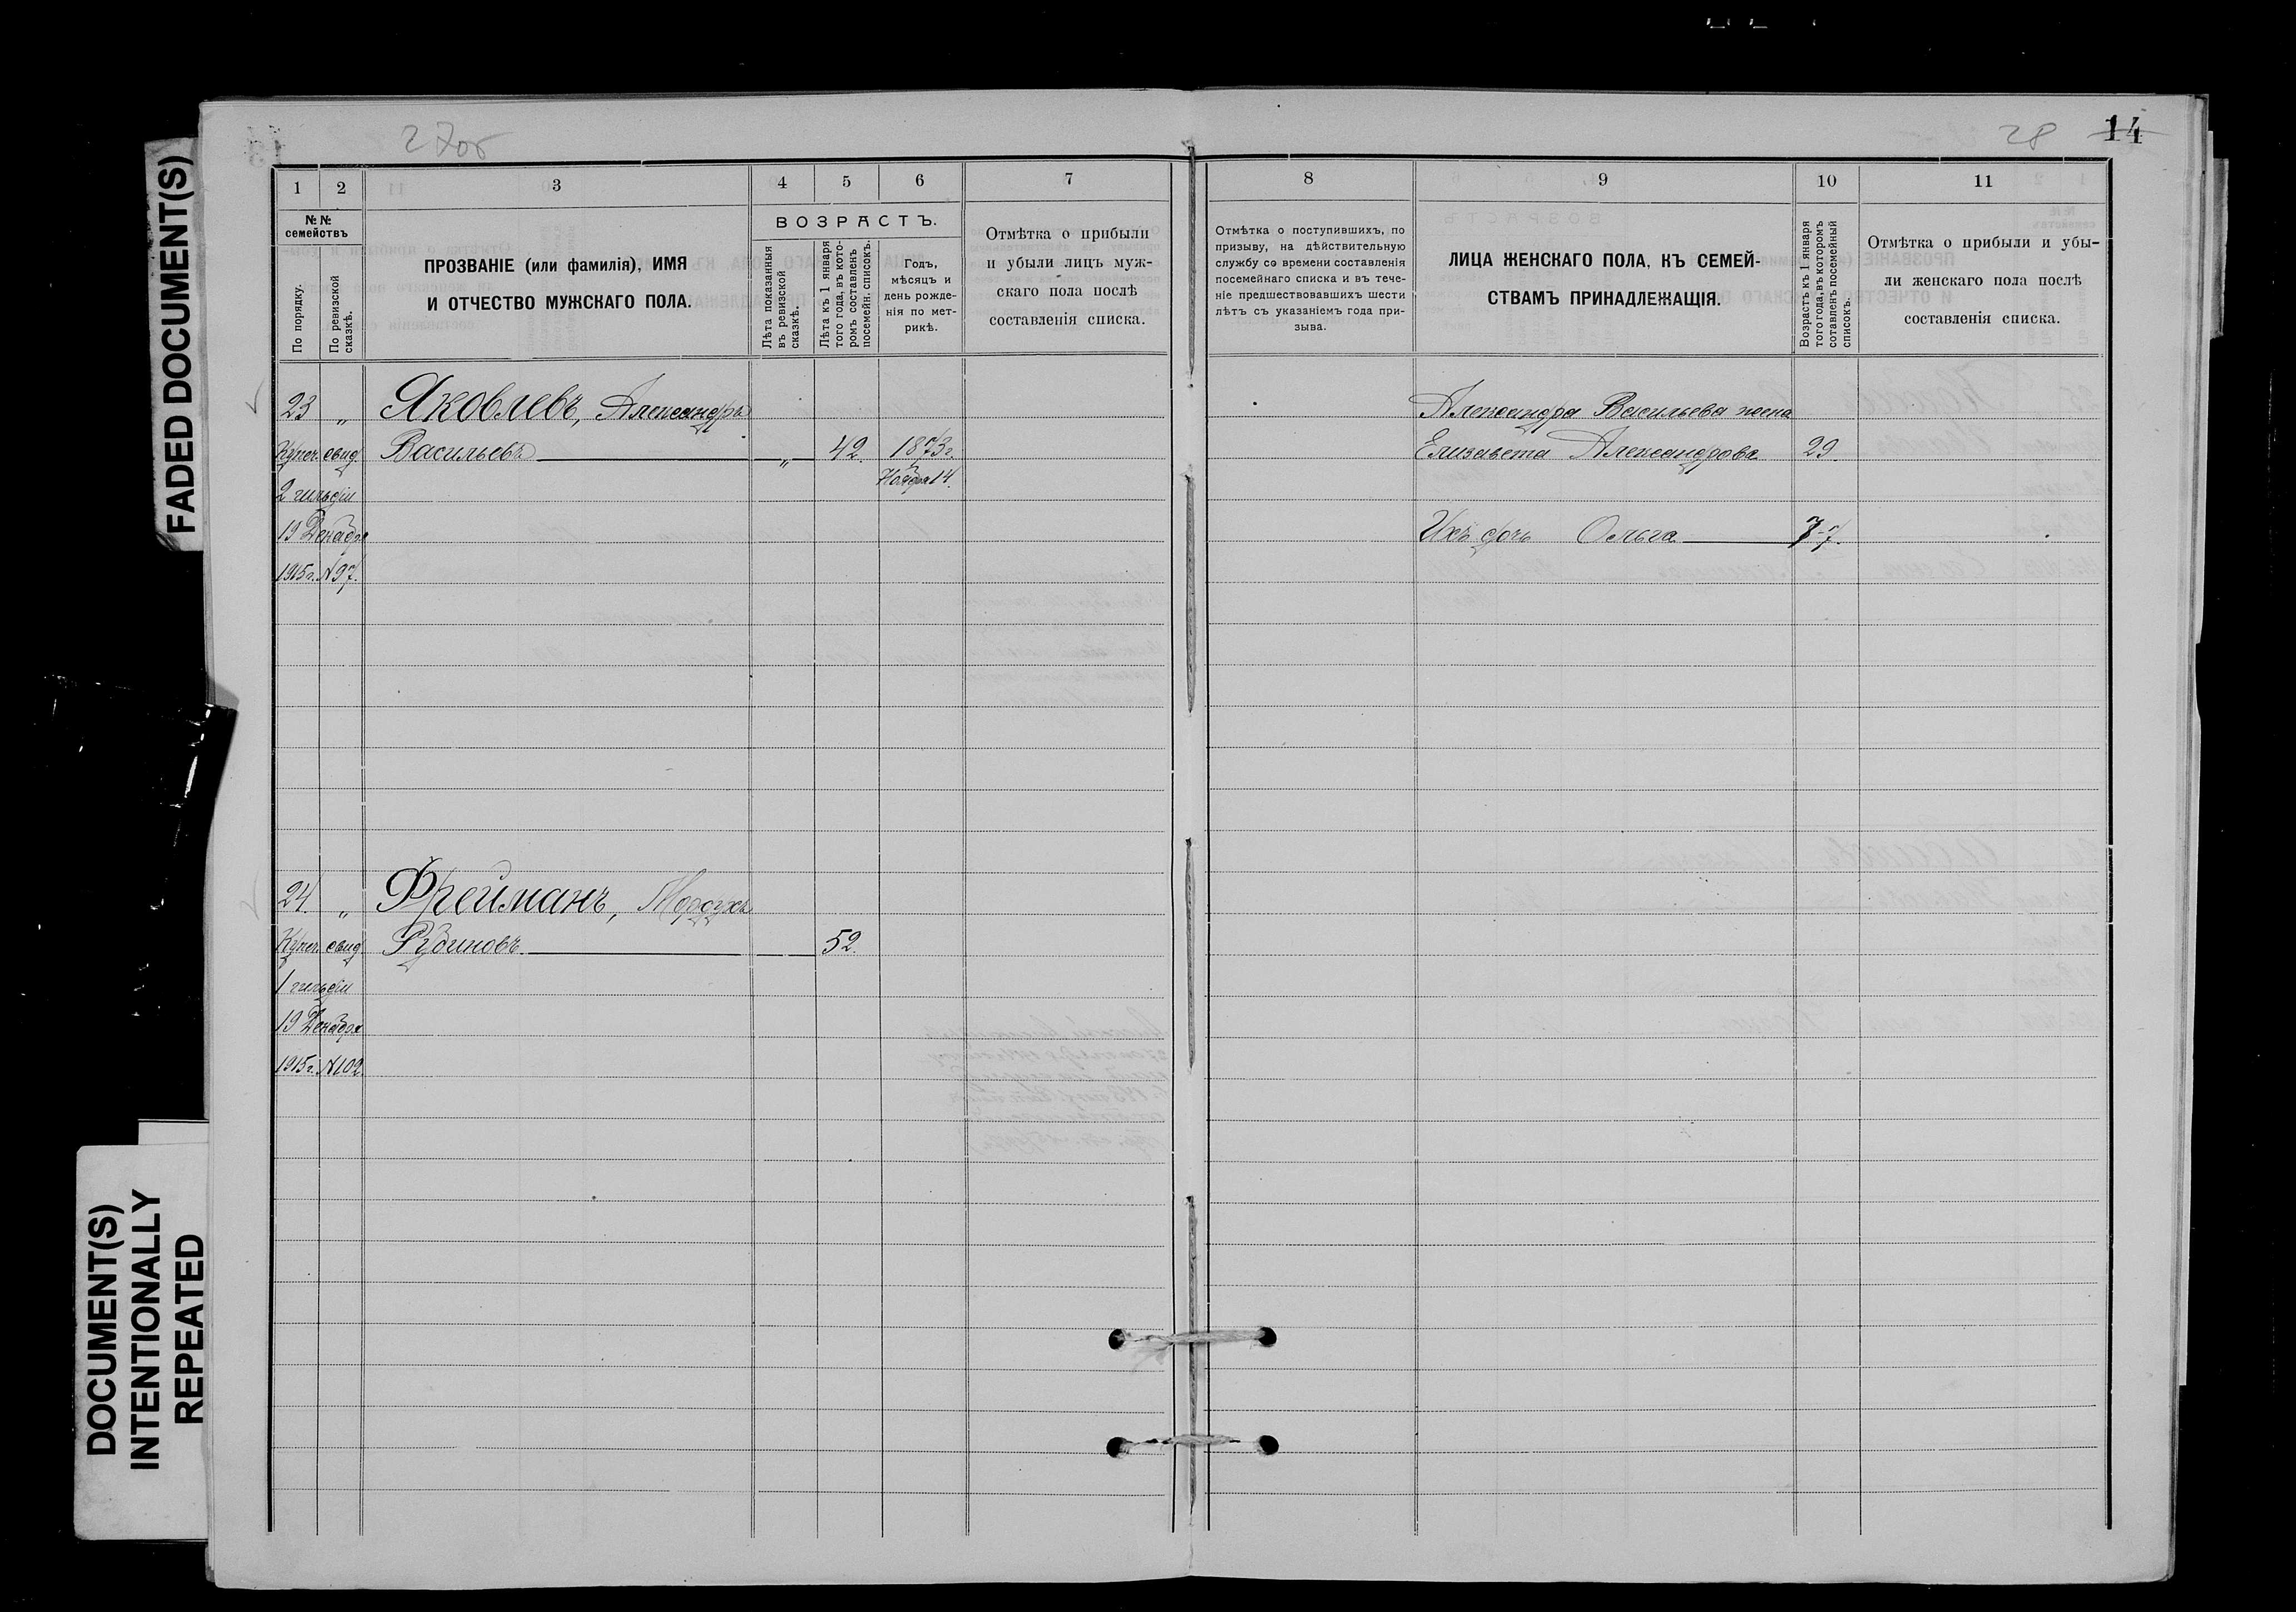 FADED DOCUMENT(S)
DOCUMENT(S)
INTENTIONALLY
REPEATED
27об
28 14
1 2 3 4 5 6 7
№ №
семействъ
По порядку.
По ревизской
сказкѣ.
ПРОЗВАНІЕ (или фамилія), ИМЯ
И ОТЧЕСТВО МУЖСКАГО ПОЛА.
ВОЗРАСТЪ.
Лѣта показанныя
въ ревизской
сказкѣ.
Лѣта къ 1 января
того года, въ кото-
ромъ составленъ
посемейн. списокъ.
Годъ,
мѣсяцъ и
день рожде-
нія по мет-
рикѣ.
Отмѣтка о прибыли
и убыли лицъ муж-
скаго пола послѣ
составленія списка.
23 „ Яковлевъ, Александръ
Купеч. свид. Васильевъ „ 42. 1873г.
Ноября 14.
2 гильдіи
19 Декабря
1915г. №97.
24. „ Фрейманъ, Мордухъ
Купеч. свид. Рубиновъ 52.
1 гильдіи
19 Декабря
1915г. №102.
8 9 10 11
Отмѣтка о поступившихъ, по
призыву, на дѣйствительную
службу со времени составленія
посемейнаго списка и въ тече-
ніе предшествовавшихъ шести
лѣтъ съ указаніемъ года при-
зыва.
ЛИЦА ЖЕНСКАГО ПОЛА, КЪ СЕМЕЙ-
СТВАМЪ ПРИНАДЛЕЖАЩІЯ.
Возрастъ къ 1 января
того года, въ которомъ
составленъ посемейный
списокъ.
Отмѣтка о прибыли и убы-
ли женскаго пола послѣ
составленія списка.
Александра Васильева жена
Елизавета Александрова 29.
Ихъ дочь Ольга 7.